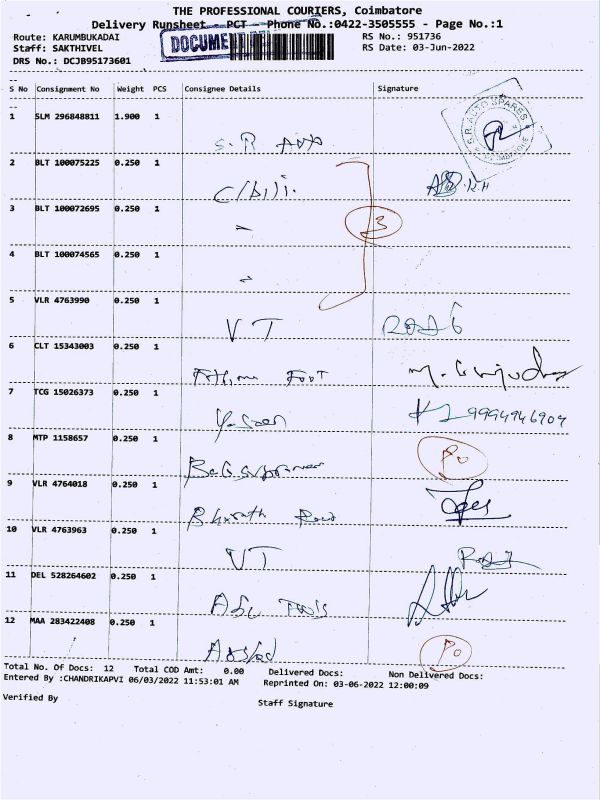 THE PROFESSIONAL COURIERS, Coimbatore
Delivery Runsheet - PCT - Phone No.:0422-3505555 - Page No.:1
Route: KARUMBUKADAI
RS No.: 951736
Staff: SAKTHIVEL
DOCUME
RS Date: 03-Jun-2022
DRS No.: DCJB95173601
S No Consignment No Weight PCS Consignee Details Signature
S.R. AUTO SPARES
1 SLM 296848811 1.900 1
S. R Auto
2 BLT 100075225 0.250 1
C/bili.
3 BLT 100072695 0.250 1
3
4 BLT 100074565 0.250 1
5 VLR 4763990 0.250 1
VT
6 CLT 15343003 0.250 1
7 TCG 15026373 0.250 1
9994946909
8 MTP 1158657 0.250 1
Po
9 VLR 4764018 0.250 1
Bharath
10 VLR 4763963 0.250 1
VT
11 DEL 528264602 0.250 1
Tools
12 MAA 283422408 0.250 1
Po
Total No. Of Docs: 12 Total COD Amt: 0.00 Delivered Docs: Non Delivered Docs:
Entered By :CHANDRIKAPVI 06/03/2022 11:53:01 AM Reprinted On: 03-06-2022 12:00:09
Verified By
Staff Signature